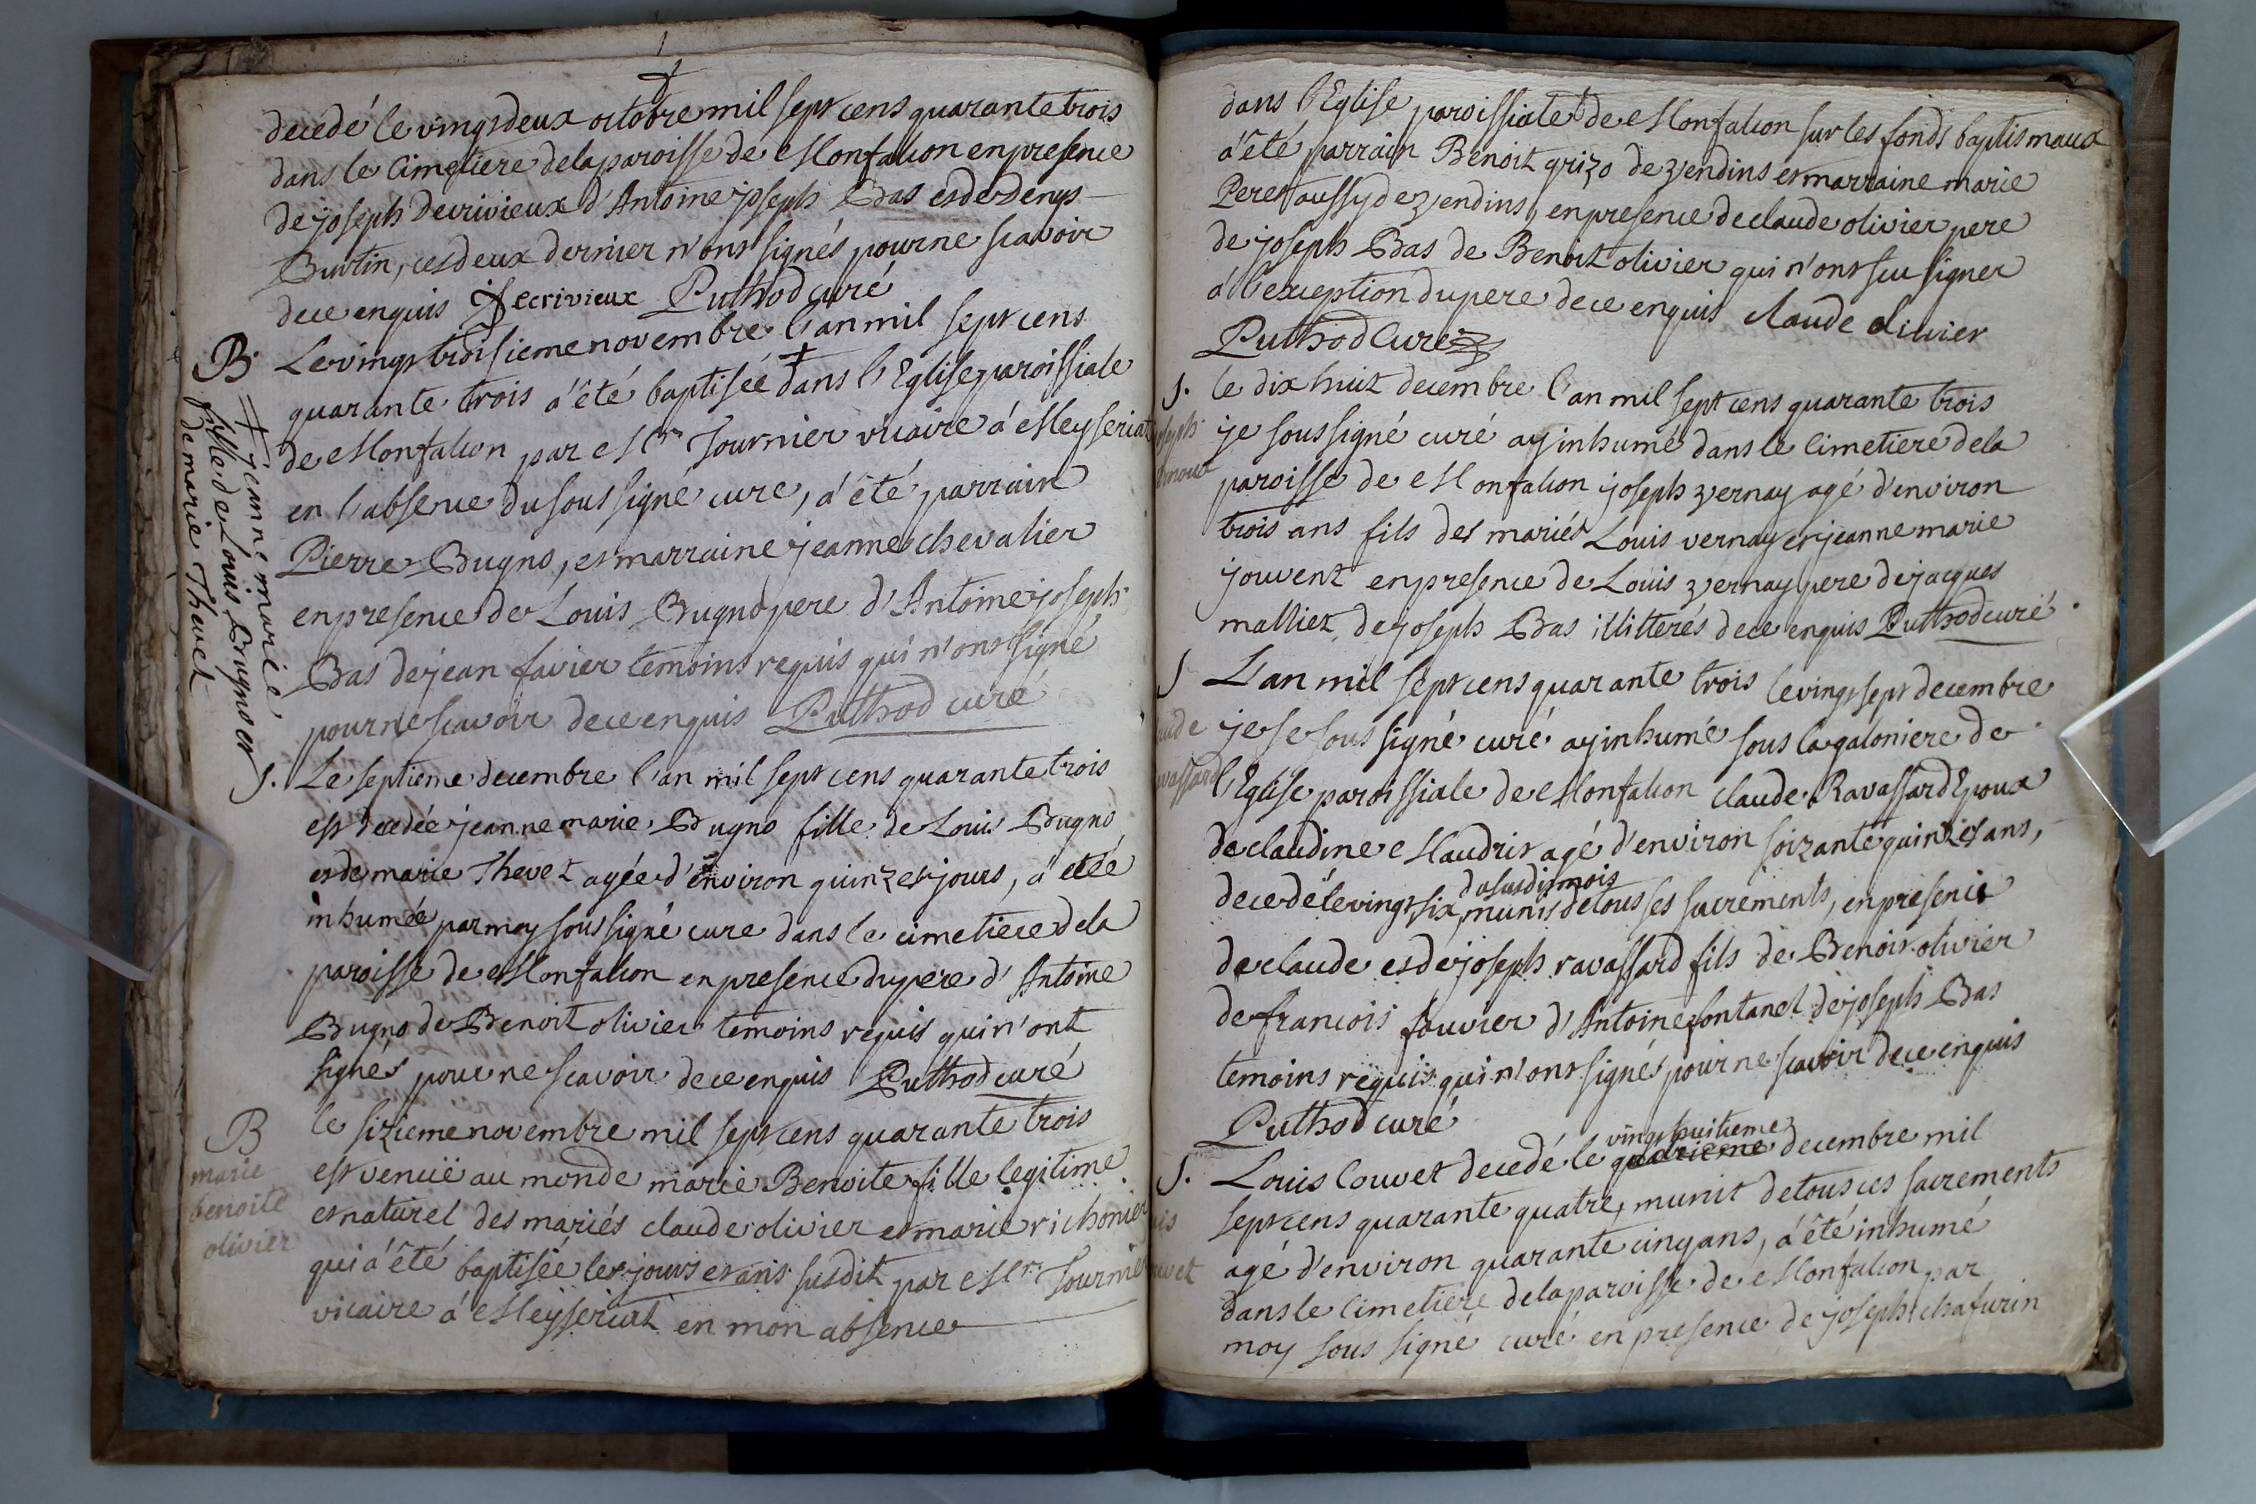 decedé le vingt deux octobre mil sept cens quarante trois
dans le cimetiere de la paroisse de Monfalcon en presence
de joseph decrivieux d'Antoine joseph Bas et de denys
Burtin, ces deux dernier n'ont signés pour ne scavoir
de ce enquis J ecrivieux Puthod curé
B. Le vingt troisieme novembre l'an mil sept cens
quarante trois a été baptisée ‡ dans l'Eglise paroissiale
de Monfalcon par Mr. Tournier vicaire á Meyseriat
en l'absence du sous signé cure, a été parrain
Pierre Bugno, et marraine jeanne chevalier
en presence de Louis Bugno pere d'Antoine joseph
Bas de jean favier temoins requis qui n'ont signé
pour ne scavoir de ce enquis Puthod curé
‡ jeanne marie
fille de Louis Bugno et
de marie Thevet
J. Le septieme decembre l'an mil sept cens quarante trois
est decedée jeanne marie Bugno fille de Louis Bugno
et de marie Thevet agée d'environ quinze jours, a etée
inhumée par moy sous signé cure dans le cimetiere de la
paroisse de Monfalcon en presence du pere d'Antoine
Bugno de Benoit olivier temoins requis qui n'ont
signés pour ne scavoir de ce enquis Puthod curé
B le sizieme novembre mil sept cens quarante trois
marie
benoite
olivier
est venuë au monde marie Benoite fille legitime
et naturel des mariés claude olivier et marie richonier
qui a été baptisée les jours et ans susdit par Mr. Tournier
vicaire á Meysseriat en mon absence
dans l'Eglise paroissiale de Monfalcon sur les fonds baptismaux
a été parrain Benoit grizo de vendins et marraine marie
Peret aussy de vendins, en presence de claude olivier pere
de joseph Bas de Benoit olivier qui n'ont scu signer
á l'exception du pere de ce enquis claude olivier
Puthod Curé
J. le dix huit decembre l'an mil sept cens quarante trois
je sous signé curé ay inhumé dans le cimetiere de la
paroisse de Monfalcon joseph vernay agé d'environ
trois ans fils des mariés Louis vernay et jeanne marie
jouvent en presence de Louis vernay pere de jacques
malliez de joseph Bas illitterés de ce enquis Puthod curé
J L'an mil sept cens quarante trois le vingt sept decembre
je se sous signé curé ay inhumé sous la galoniere de
l'Eglise paroissiale de Monfalcon claude Ravassard Epoux
de claudine Maudrit agé d'environ soizante quinze ans,
du susdit mois
decedé le vingt six, munis de tous ses sacrements, en presence
de claude et de joseph ravassard fils de Benoit olivier
de francois fauvier d'Antoine fontanel de joseph Bas
temoins requis qui n'ont signés pour ne scavoir de ce enquis
Puthod curé
vingt huitieme
J. Louis Couvet decedé le quatrieme decembre mil
sept cens quarante quatre, munit de tous ces sacrements
agé d'environ quarante cinq ans, a été inhumé
dans le cimetiere de la paroisse de Monfalcon par
moy sous signé curé en presence de joseph chafurin